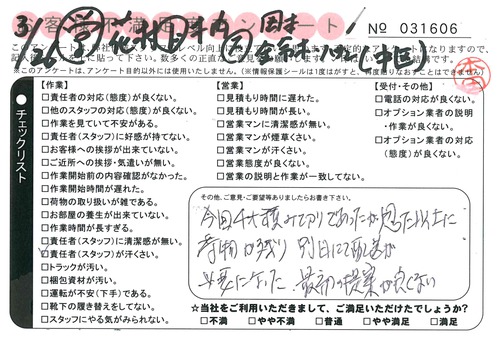 お客様不満足度アンケート
No 031606
3/26
【作業】
□責任者の対応(態度)が良くない。
□他のスタッフの対応(態度)が良くない。
□作業を見ていて不安がある。
□責任者(スタッフ)に好感が持てない。
□お客様への挨拶が出来ていない。
□ご近所への挨拶・気遣いが無い。
□作業開始前の内容確認がなかった。
□作業開始時間が遅れた。
□荷物の取り扱いが雑である。
□お部屋の養生が出来ていない。
□作業時間が長すぎる。
□責任者(スタッフ)に清潔感が無い。
□責任者(スタッフ)が汗くさい。
□トラックが汚い。
□梱包資材が汚い。
□運転が不安(下手)である。
□靴下の履き替えをしてない。
□スタッフにやる気がみられない。
【営業】
□見積もり時間に遅れた。
□見積もり時間が長い。
□営業マンに清潔感が無い。
□営業マンが煙草くさい。
□営業マンが汗くさい。
□営業態度が良くない。
□営業の説明と作業が一致してない。
【受付・その他】
□電話の対応が良くない。
□オプション業者の説明
・作業が良くない。
□オプション業者の対応
(態度)が良くない。
チェックリスト
その他、ご意見・ご要望等ありましたらお書き下さい。
今回4t積みでのりであったが思った以上に
荷物が残り 別日にて配送が
必要になった 最初の提案が良くない
☆当社をご利用いただきまして、ご満足いただけたでしょうか?
□不満 □やや不満 □普通 □やや満足 □満足